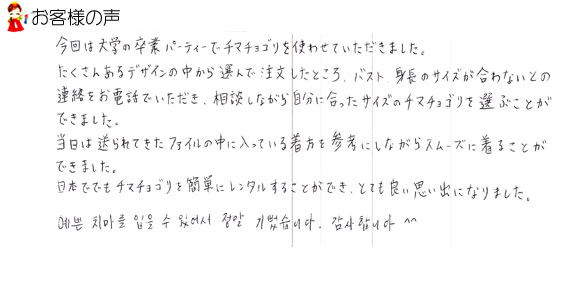 お客様の声
今回は大学の卒業パーティーでチマチョゴリを使わせていただきました。
たくさんあるデザインの中から選んで注文したところ、バスト、身長のサイズが合わないとの
連絡をお電話でいただき、相談しながら自分に合ったサイズのチマチョゴリを選ぶことが
できました。
当日は送られてきたファイルの中に入っている着方を参考にしながらスムーズに着ることが
できました。
日本ででもチマチョゴリを簡単にレンタルすることができ、とても良い思い出になりました。
예쁜 치마를 입을 수 있어서 정말 기뻤습니다. 감사합니다 ^^